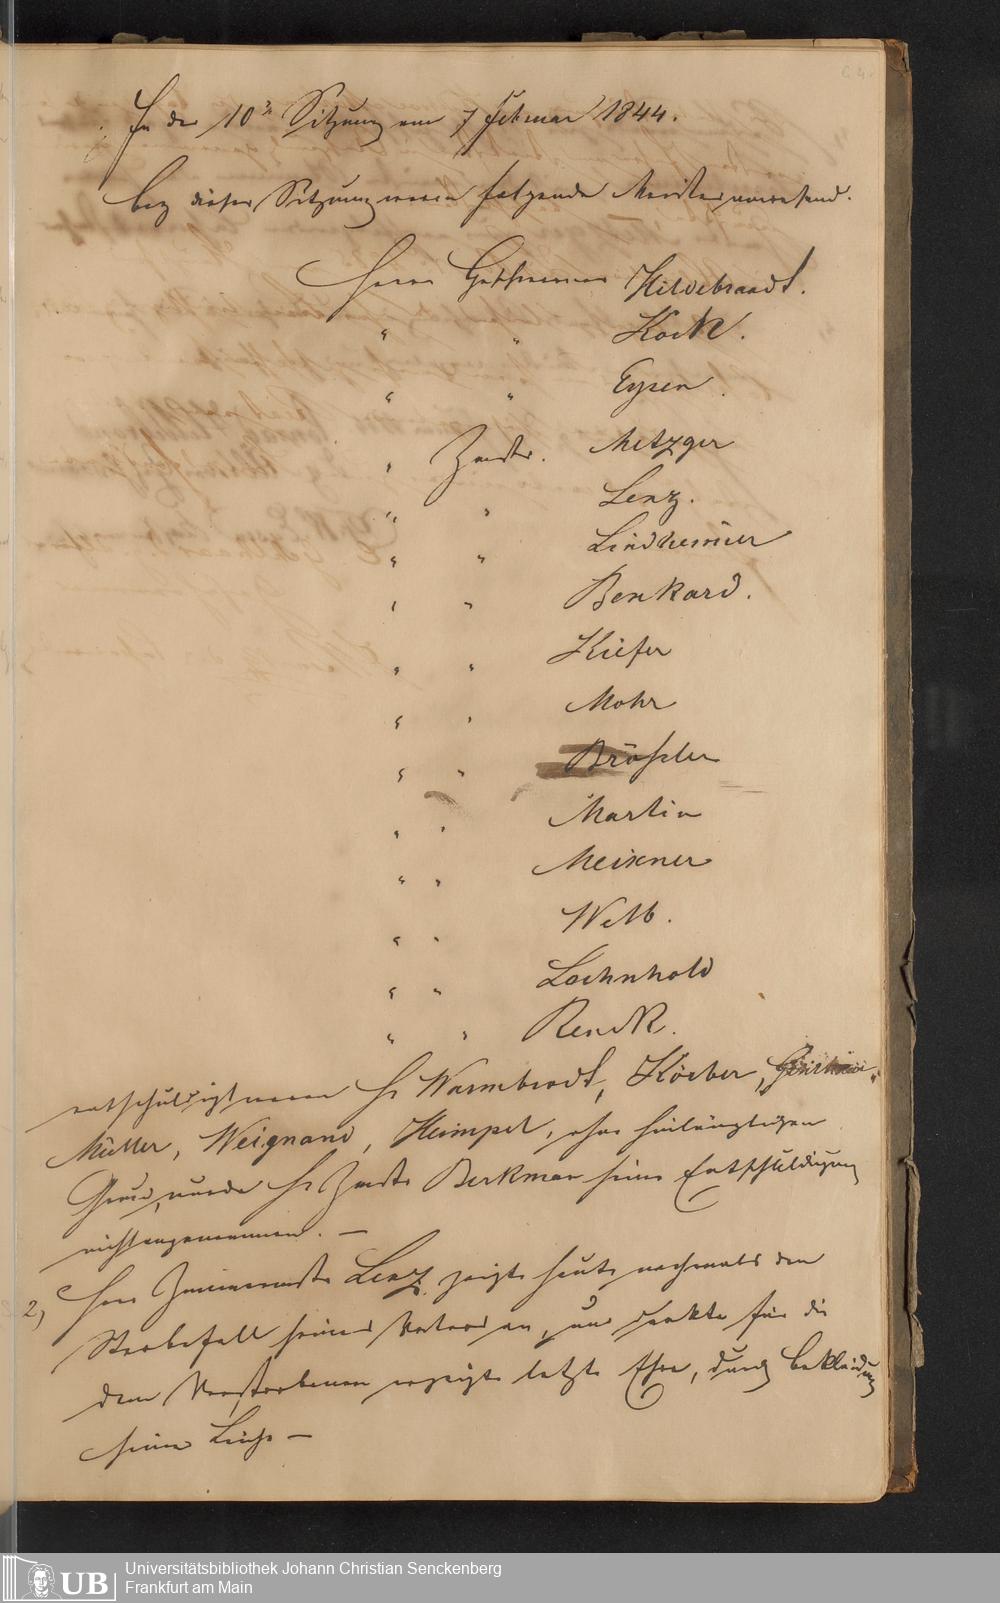 In der 10ᵗᵉ Sitzung am 7 Februar 1844.
bey dieser Sitzung waren folgende Meister anwesend.
Herrn Geschworner Hildebrandt.
" " Kock.
" " Eysen.
" Zmstr. Metzger
" " Lenz.
" " Lindheimer
" " Benkard.
" " Kiefer
" " Mohr
" " Bröhler
" " Martin
" " Meixner
" " Welb.
" " Lochnhold
" " Renck.
entschuldigt waren Hr Warmbrodt, Körber,
Müller, Weignand, Heimpel, ohne hinlänglichen
Grund, wurde Hr Zmstr Berkman seine Entschuldigung
nicht angenommen. —
2, Herr Zimmermstr Lenz zeigte heute nochmals den
Sterbefall seines Vaters an, und dankte für die
dem Verstorbenen erzeigte letzte Ehre, durch Bekleidung
seiner Leiche —
Universitätsbibliothek Johann Christian Senckenberg
Frankfurt am Main
UB